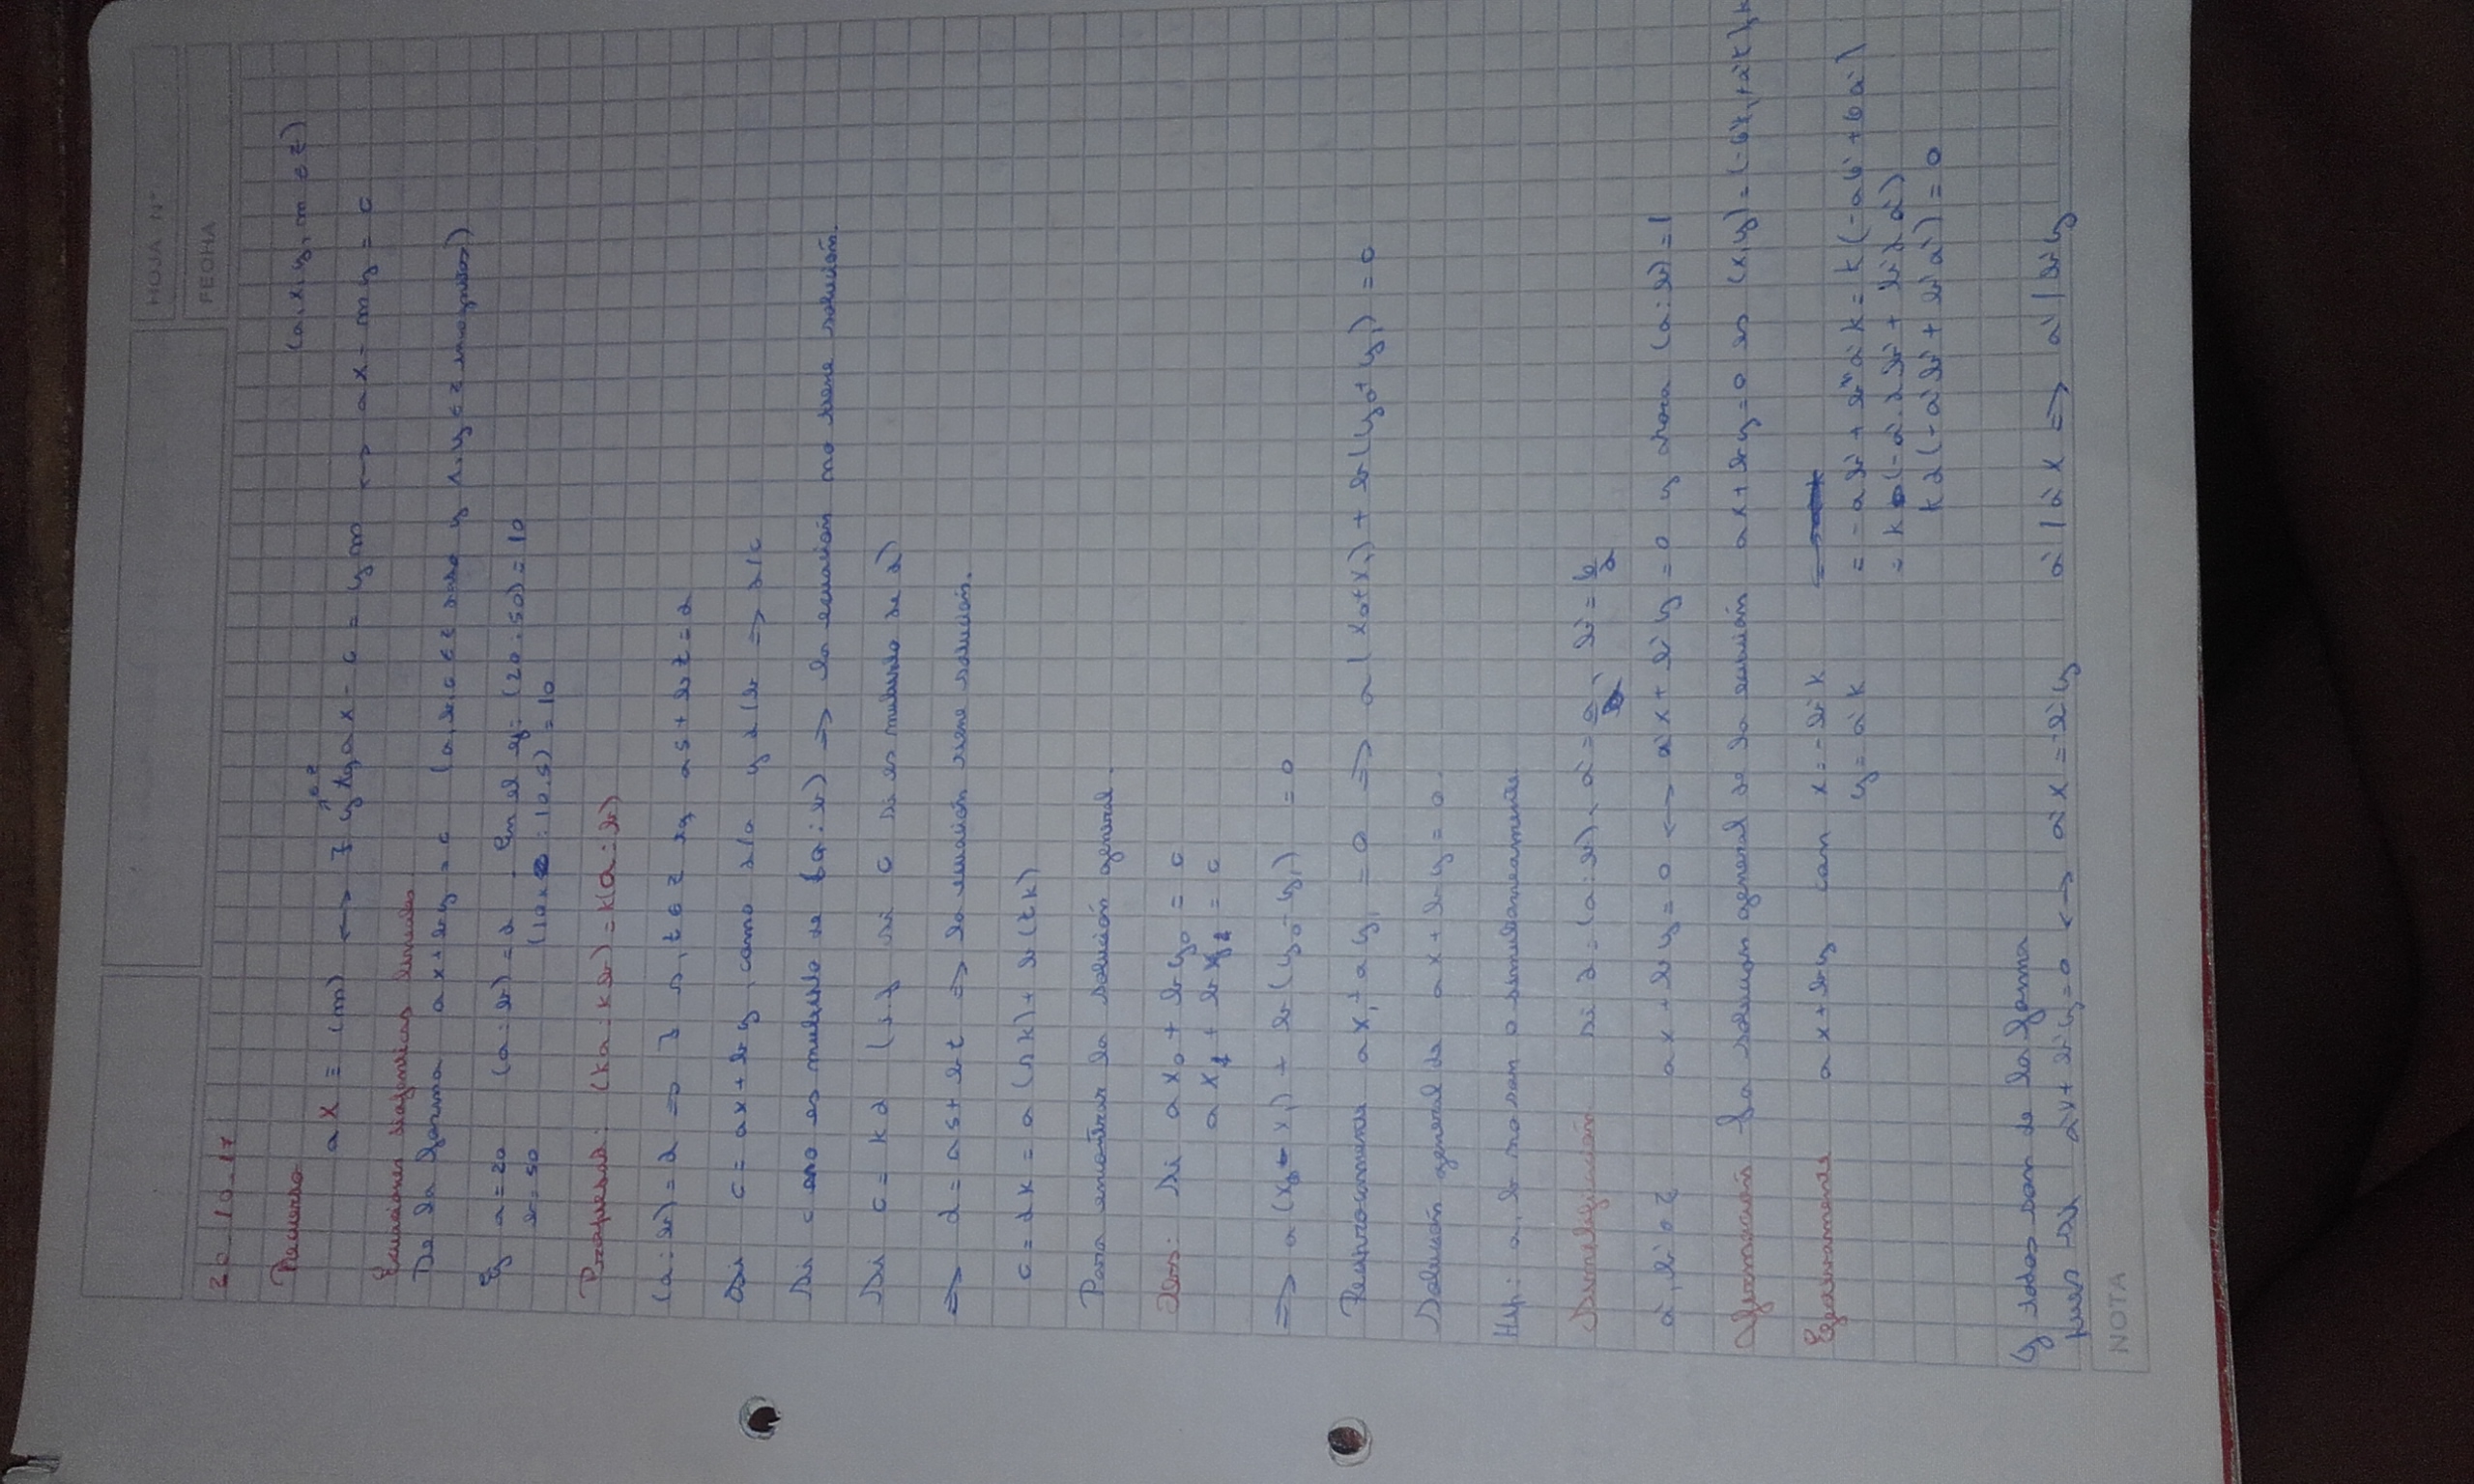 HOJA N°
FECHA
20-10-17
Recuerdo (a, x, y, m ∈ Z)
a x ≡ (m) ↔ ∃ y ∈ Z tq a x - c = y m ↔ a x - m y = c
Ecuaciones diofanticas lineales
De la forma ax + by = c (a, b, c ∈ Z dado y x, y ∈ Z incognitas)
Ej a = 20 (a : b) = d . En el ej: (20 : 50) = 10
b = 50 (10.2 : 10.5) = 10
Propiedad: (ka : kb) = k(a : b)
(a : b) = d ⇒ ∃ s, t ∈ Z tq as + bt = d
Si c = ax + by , como d/a y d/b ⇒ d/c
Si c no es multiplo de (a : b) ⇒ la ecuación no tiene solución.
Si c = kd (i.e si c si es multiplo de d)
⇒ d = as + bt ⇒ la ecuación tiene solución.
c = dk = a (sk) + b (tk)
Para encontrar la solución general.
Obs: Si a x₀ + b y₀ = c
a x₁ + b y₁ = c
⇒ a (x₀ - x₁) + b (y₀ - y₁) = 0
Reciprocamente a x₁ + a y₁ = 0 ⇒ a (x₀ + x₁) + b (y₀ + y₁) = c
Solución general de ax + by = 0.
Hip: a, b no son 0 simultaneamente.
Simplificación si d = (a : b), a' = a/d, b' = b/d
a', b' ∈ Z ax + by = 0 ↔ a'x + b'y = 0 y ahora (a : b) = 1
Afirmación La solución general de la ecuación ax + by = 0 es (x, y) = (-b'k, + a'k), k
Efectivamente ax + by con x = -b'k
y = a'k = -a b' + b a' k = k (-a b' + b a')
= k (-a' d b' + b' d a')
k d (-a' b' + b' a') = 0
y todos son de la forma
pues si a'x + b'y = 0 ↔ a'x = -b'y a' / a'x ⇒ a' / b'y
NOTA